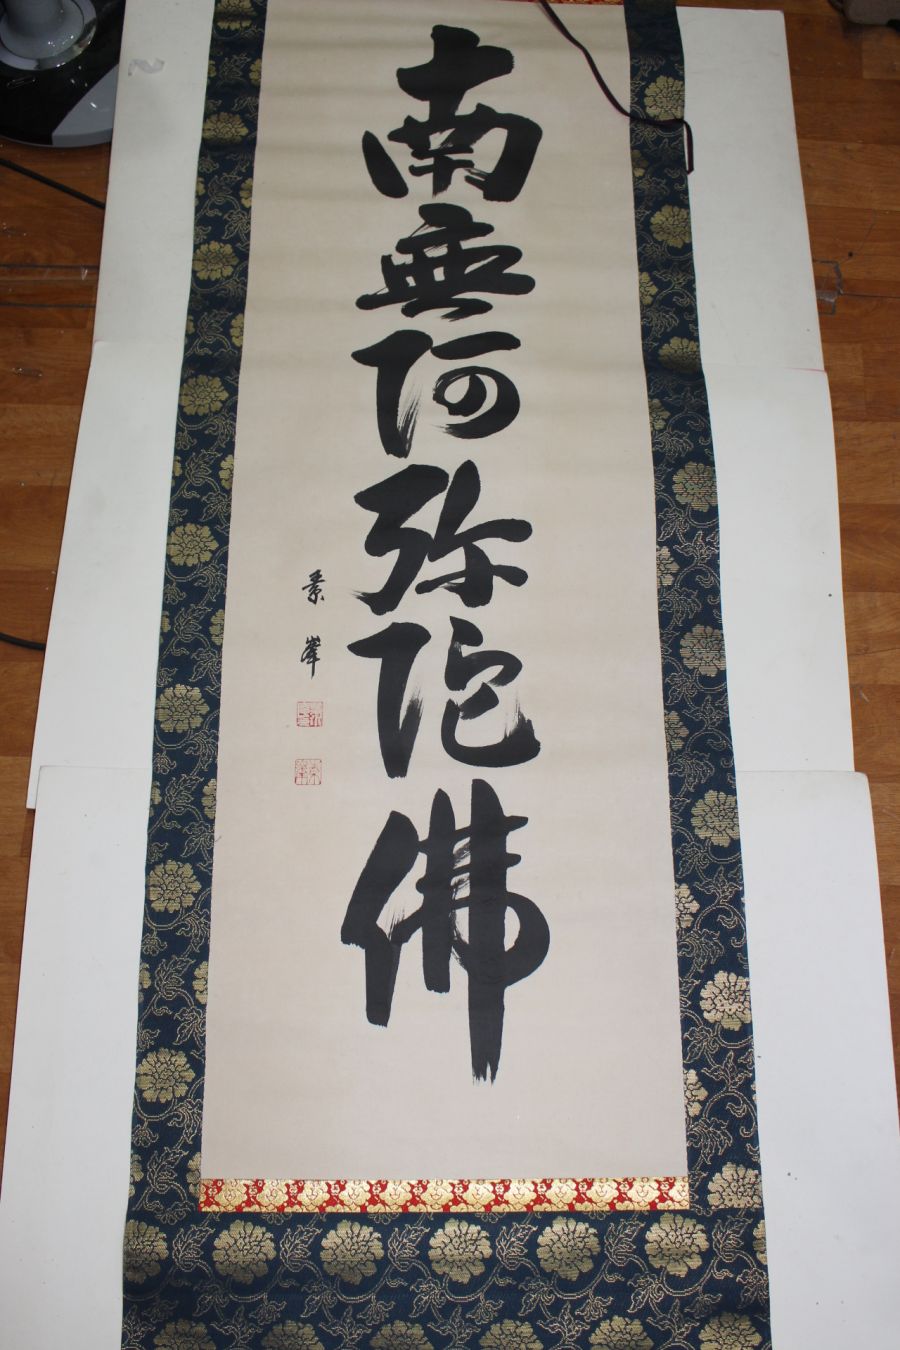 南無阿弥陀佛
素峯